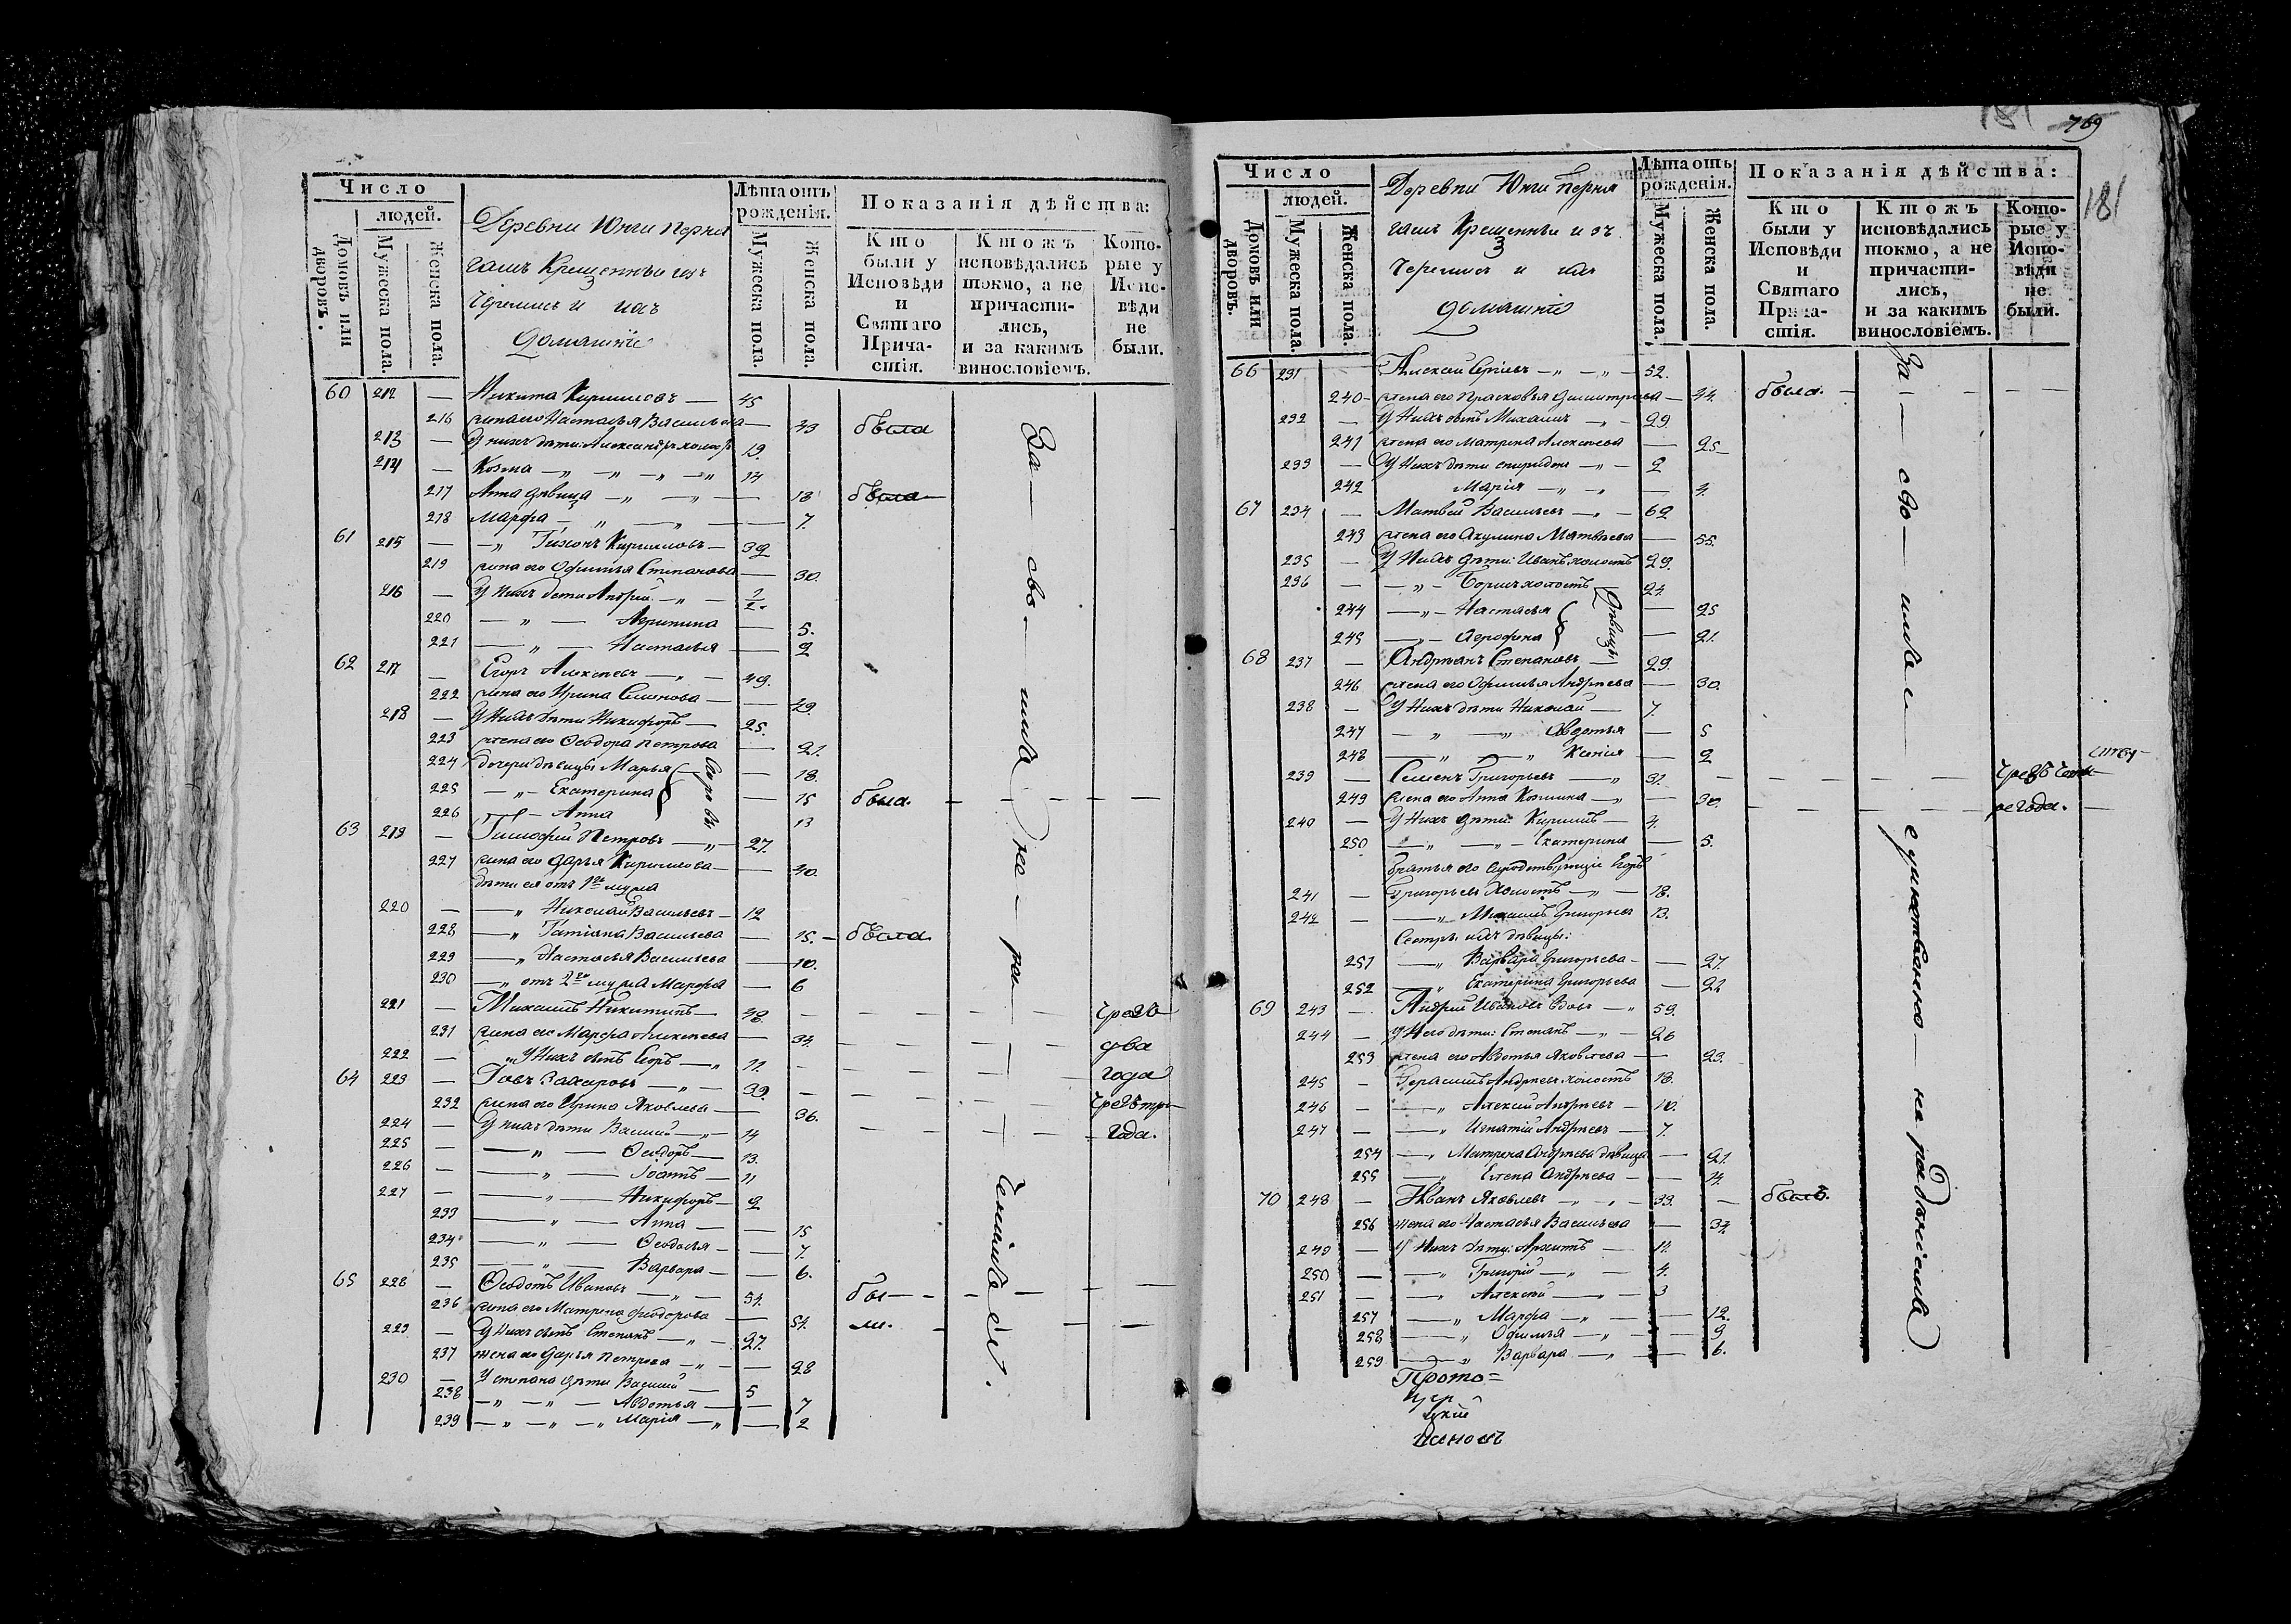 Число
людей.
Домовъ или дворовъ.
Мужеска пола.
Женска пола.
Деревни Юнги Перня
гашъ Крещенныи изъ
Черемисъ и ихъ
домашніе
Лѣта отъ рожденія.
Мужеска пола.
Женска пола.
Показанія дѣйства:
Кто были у Исповѣди и Святаго Прича-стія.
Ктожъ исповѣдались токмо, а не причасти-лись, и за какимъ винословіемъ.
Кото-рые у Испо-вѣди не были.
60 212 — Никита Кириловъ — 45
216 жена его Настасья Васильева — 43 была
213 — У нихъ дѣти: Александръ холостъ 19
214 — Козма — 14
217 Анна дѣвица — 18 была
218 Марфа — 7.
61 215 — Тихонъ Кириловъ — 32
219 жена его Офимья Степанова — 30.
216 — У нихъ дѣти Андрей — 1/2
220 — Агрипина — 5.
221 — Настасья — 2
62 217 — Егоръ Алексѣевъ — 49.
222 жена его Ирина Семенова — 49.
218 — У нихъ дѣти Никифоръ — 25.
223 жена его Ѳеодора Петрова — 21.
224 дочери дѣвицы Марья — 18.
225 — Екатерина — 15 была.
226 — Анна 13
63 219 — Тимофей Петровъ — 27.
227 жена его Дарья Кирилова — 40.
дѣти ея отъ 1го мужа
220 — Николай Васильевъ — 12
228 — Татіана Васильева — 15. — была
229 — Настасья Васильева — 10.
230 — отъ 2го мужа Марфа — 6
221 — Михаилъ Никитинъ — 48. — чрезъ
231 жена его Марфа Алексѣева — 34. — два
222 — У нихъ сынъ Егоръ — 11. — года
64 223 — Іовъ Захаровъ — 39. — чрезъ три
232 жена его Ирина Яковлева — 36. — года.
224 — У нихъ дѣти Василій — 14
225 — Ѳеодоръ — 13.
226 — Іоаннъ — 11
227 — Никифоръ — 2
233 — Анна — 15
234 — Ѳеодосья — 7.
235 — Варвара — 6.
65 228 — Ѳеодотъ Ивановъ — 54. бы-
236 жена его Матрена Федорова — 54. ли.
229 — У нихъ сынъ Степанъ — 27.
237 жена его Дарья Петрова — 28
230 — У степана дѣти Василій — 5
238 — Авдотья — 7
239 — Марія — 2
769
181
Число
людей.
Домовъ или дворовъ.
Мужеска пола.
Женска пола.
Деревни Юнги Перня
гашъ Крещенныи изъ
Черемисъ и ихъ
домашніе
Лѣта отъ рожденія.
Мужеска пола.
Женска пола.
Показанія дѣйства:
Кто были у Исповѣди и Святаго Прича-стія.
Ктожъ исповѣдались токмо, а не причасти-лись, и за какимъ винословіемъ.
Кото-рые у Испо-вѣди не были.
66 231 Алексей Сергіевъ — 52.
240 — жена его Прасковья Димитрева — 44. была.
232 — У нихъ сынъ Михаилъ — 29
241 жена его Матрена Алексѣева — 25
233 — У Нихъ дѣти спиридонъ — 2
242 Марія — 4.
67 234 — Матвей Васильевъ — 62
243 жена его Акулина Матвѣева — 55.
235 — У Нихъ дѣти: Иванъ холостъ 29.
236 — Борисъ холостъ — 24
244 — Настасья — 25
245 — Агрофена — 21.
дѣвицы
68 237 — Андреянъ Степановъ — 29.
246 жена его Офимья Андреева — 30.
238 — У Нихъ дѣти Николай — 7.
247 — Авдотья — 5
248 — Ксенія — 2
239 — Семенъ Григорьевъ — 31.
249 жена его Анна Козмина — 30. — ре года.
240 — У Нихъ дѣти: Кирилъ — 4.
250 — Екатерина — 5.
Братья его Егоръ
241 — Григорьевъ Холостъ — 18.
242 — Михаилъ Григорьевъ 13.
Сестры ихъ дѣвицы:
251 — Варвара Григорьева — 27.
252 — Екатерина Григорьева — 22
69 243 — Андрей Ивановъ Вдовъ — 59.
244 — У Него дѣти: Степанъ — 26
253 жена его Авдотья Яковлева — 23.
245 — Герасимъ Андреевъ холостъ 18.
246 — Алексей Андреевъ — 10.
247 — Игнатій Андреевъ — 7.
254 — Матрена Андреева дѣвица — 21.
255 — Елена Андреева — 14.
70 248 — Иванъ Яковлевъ — 33. — былъ.
256 жена его Настасья Васильева — 34
249 — У Нихъ дѣти: Архипъ — 14.
250 — Григорій — 4.
251 — Алексей — 3
257 — Марфа — 12.
258 — Офимья — 9
259 — Варвара — 6.